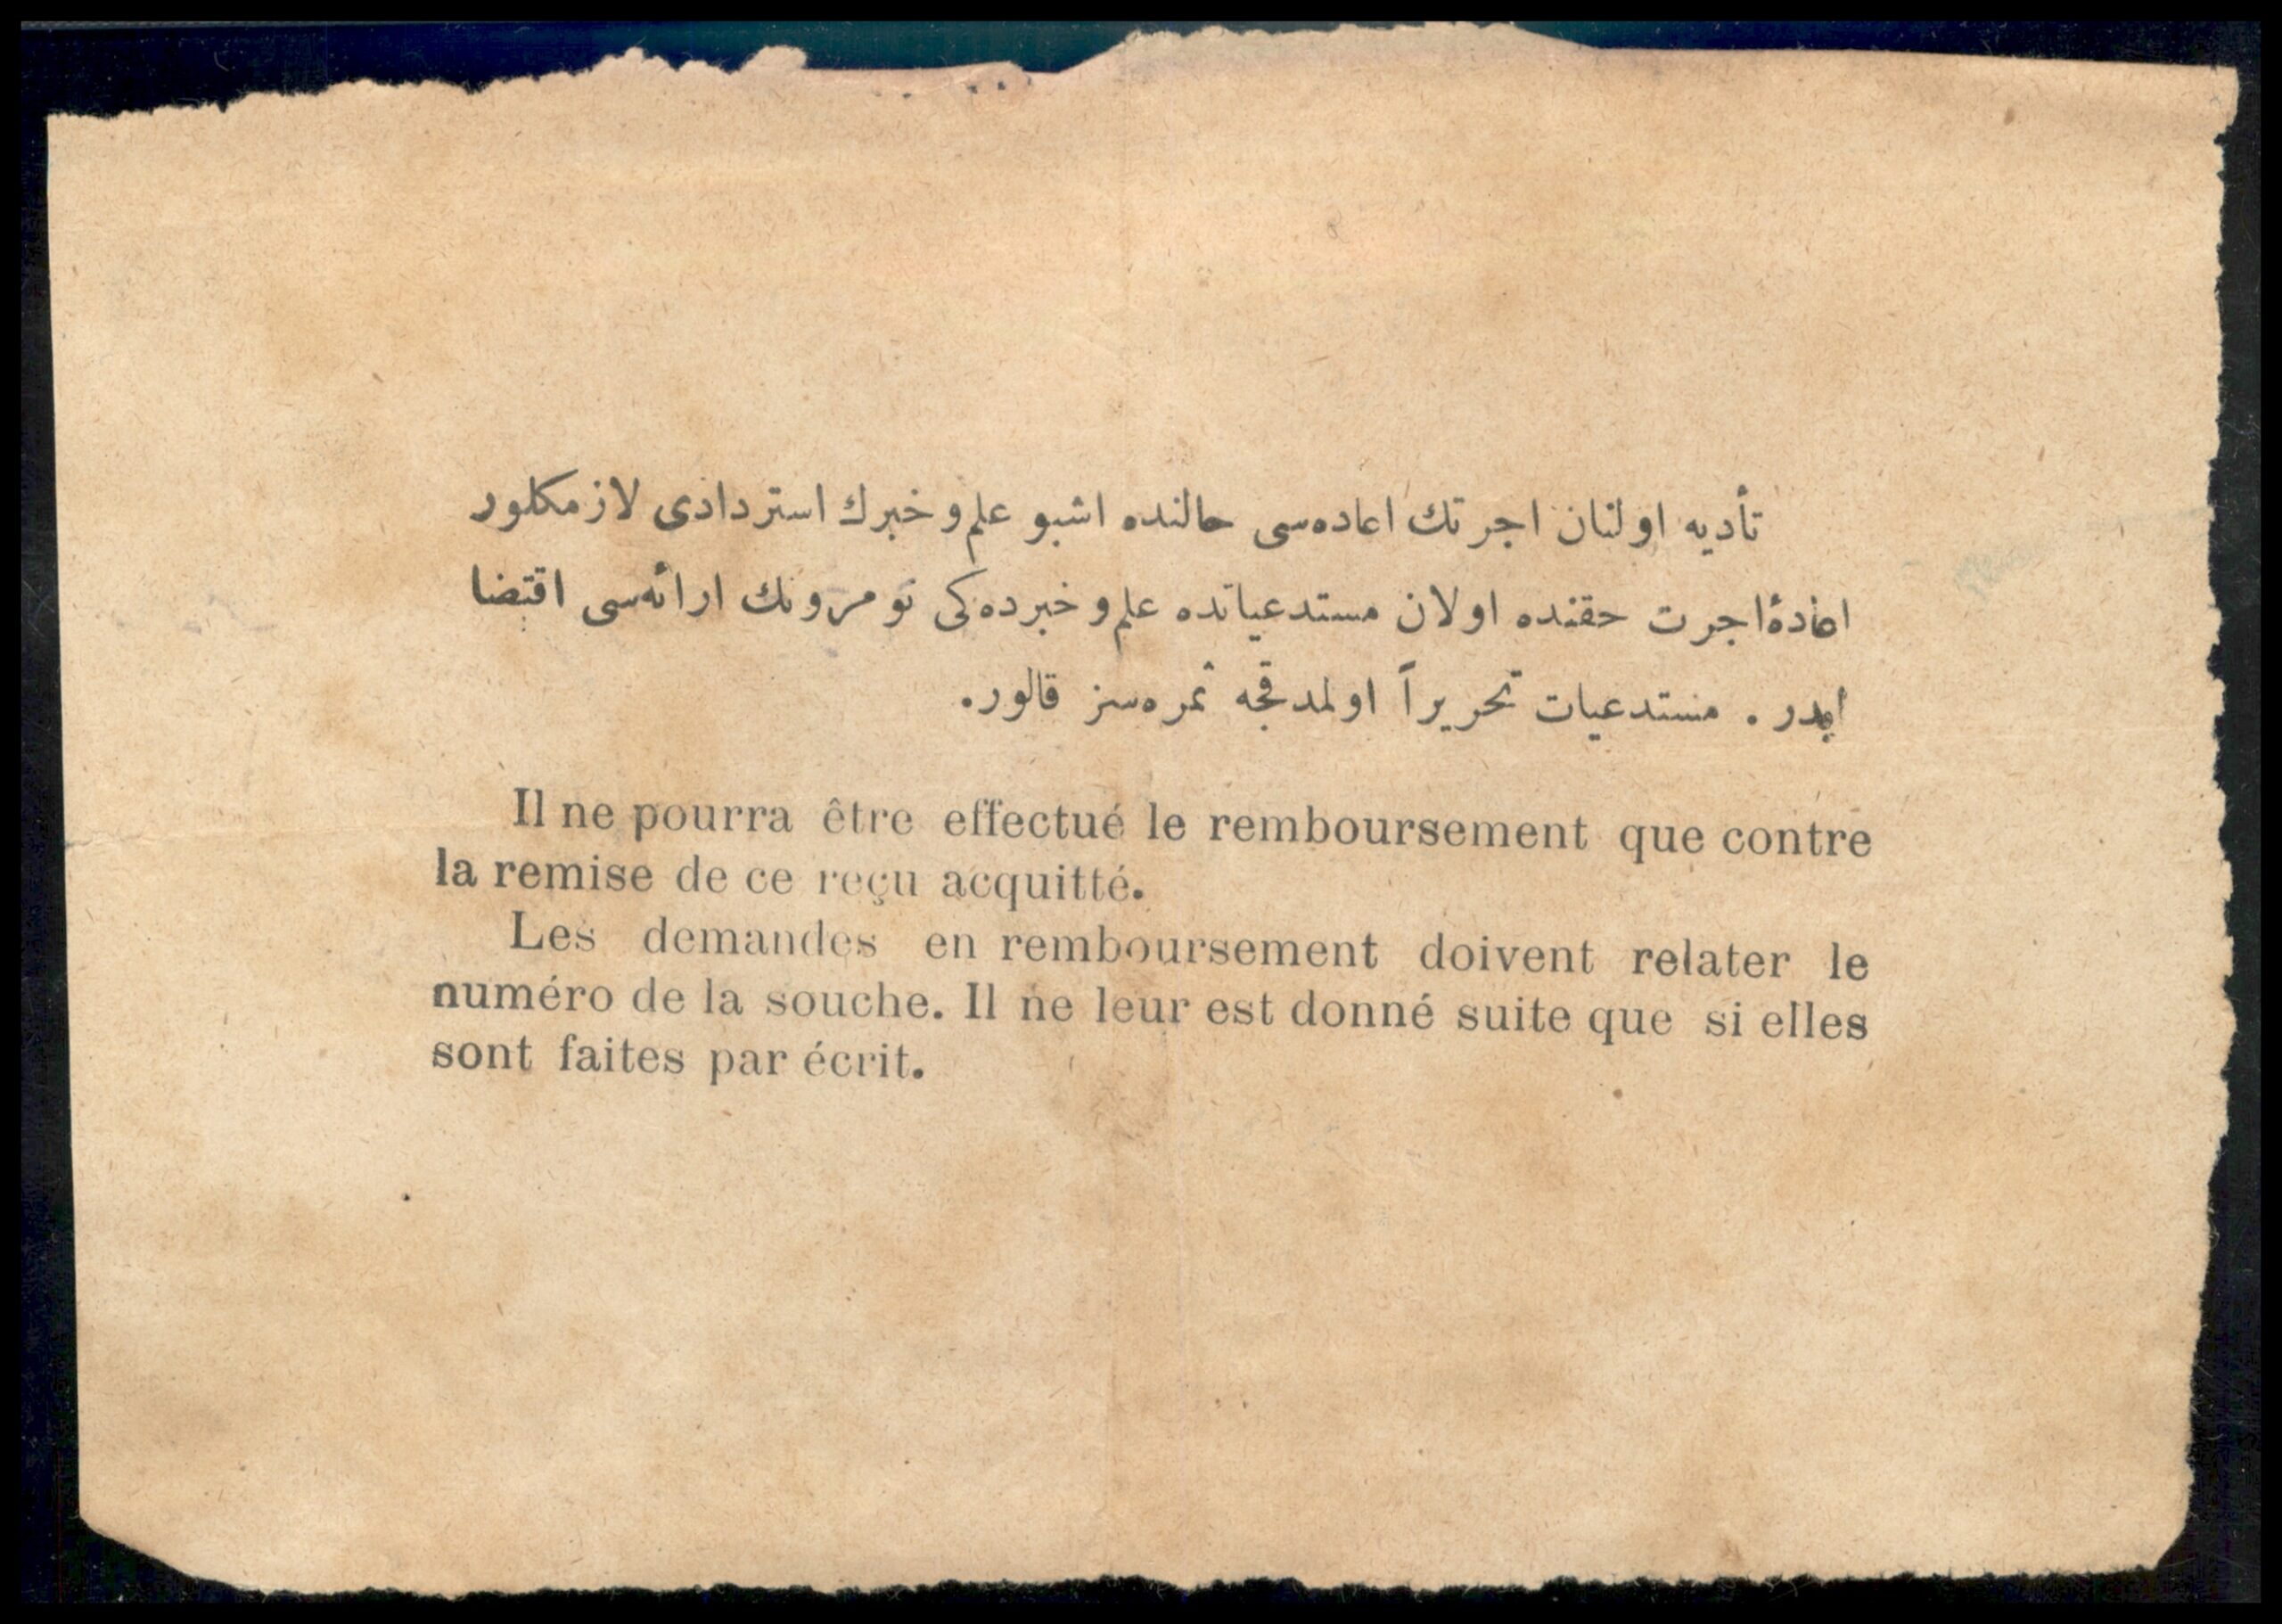 تأديه اولنان اجرتك اعاده‌سى حالنده اشبو علم و خبرك استردادى لازمكلور
اعادۀ اجرت حقنده اولان مستدعياتده علم و خبرده‌كى نومرونك ارائه‌سى اقتضا
ايدر . مستدعيات تحريراً اولمدقجه ثمره‌سز قالور.
Il ne pourra être effectué le remboursement que contre
la remise de ce reçu acquitté.
Les demandes en remboursement doivent relater le
numéro de la souche. Il ne leur est donné suite que si elles
sont faites par écrit.